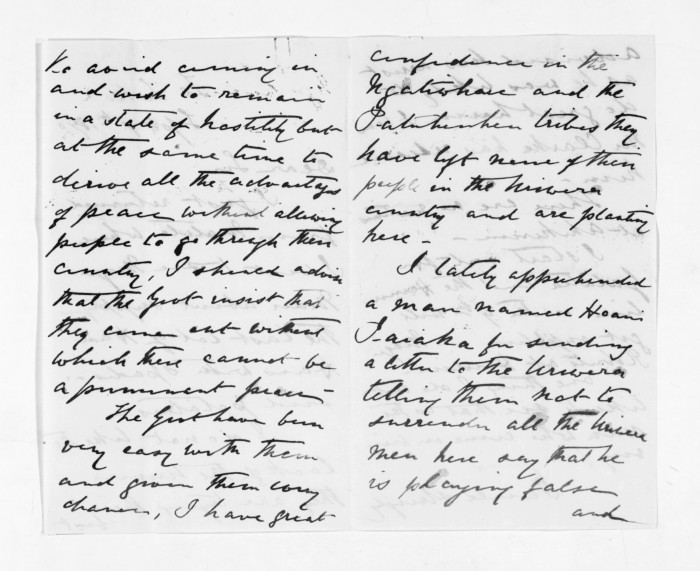 to avoid coming in
and wish to remain
in a state of hostility but
at the same time to
derive all the advantages
of peace without allowing
people to go through their
country, I should advise
that the Govt insist that
they come out without
which there cannot be
a permanent peace -
The Govt have been
very easy with them
and given them every
chance, I have great
confidence in the
Ngatiwhare and the
Patuheuheu tribes they
have left none of their
people in the Uriwera
country and are planting
here -
I lately apprehended
a man named Hoani
for sending
a letter to the Uriwera
telling them not to
surrender all the Uriwera
men here say that he
is playing false
and